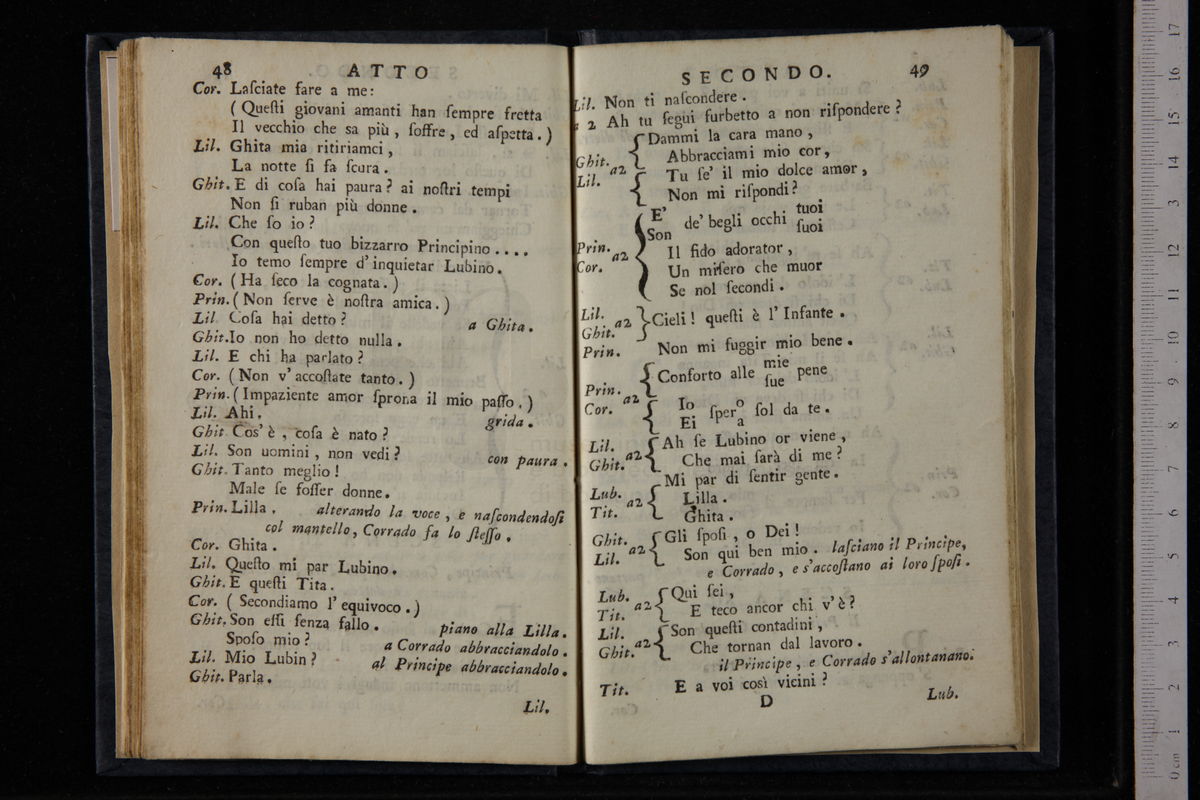 48 ATTO
Cor. Laſciate fare a me:
( Queſti giovani amanti han ſempre fretta
Il vecchio che sa più , ſoffre , ed aſpetta . )
Lil. Ghita mia ritiriamci ,
La notte ſi fa ſcura .
Ghit. E di coſa hai paura ? ai noſtri tempi
Non ſi ruban più donne .
Lil. Che ſo io ?
Con queſto tuo bizzarro Principino . . . .
Io temo ſempre d' inquietar Lubino .
Cor. ( Ha ſeco la cognata . )
Prin. ( Non ſerve è noſtra amica . )
Lil Coſa hai detto ? a Ghita .
Ghit. Io non ho detto nulla .
Lil. E chi ha parlato ?
Cor. ( Non v' accoſtate tanto . )
Prin. ( Impaziente amor ſprona il mio paſſo . )
Lil. Ahi . grida .
Ghit Cos' è , coſa è nato ?
Lil. Son uomini , non vedi ? con paura .
Ghit. Tanto meglio !
Male ſe foſſer donne .
Prin. Lilla . alterando la voce , e naſcondendoſi
col mantello , Corrado fa lo ſteſſo .
Cor. Ghita .
Lil. Queſto mi par Lubino .
Ghit. E queſti Tita .
Cor. ( Secondiamo l' equivoco . )
Ghit. Son eſſi ſenza fallo . piano alla Lilla .
Spoſo mio ? a Corrado abbracciandolo .
Lil. Mio Lubin ? al Principe abbracciandolo .
Ghit. Parla .
Lil.
SECONDO. 49
Lil. Non ti naſcondere .
a 2 Ah tu ſegui furbetto a non riſpondere ?
Dammi la cara mano ,
Ghit. Abbracciami mio cor ,
Lil. a2 Tu ſe' il mio dolce amor ,
Non mi riſpondi ?
E' tuoi
Son de' begli occhi ſuoi
Prin. a2 Il fido adorator ,
Cor. Un miſero che muor
Se nol ſecondi .
Lil.
Ghit. a2 Cieli ! queſti è l' Infante .
Prin. Non mi fuggir mio bene .
mie
Conforto alle ſue pene
Prin. a2
Cor. Io ſpero ſol da te .
Ei a
Lil. Ah ſe Lubino or viene ,
Ghit. a2 Che mai ſarà di me ?
Mi par di ſentir gente .
Lub. a2 Lilla .
Tit. Ghita .
Ghit. a2 Gli ſpoſi , o Dei !
Lil. Son qui ben mio . laſciano il Principe,
e Corrado , e s'accoſtano ai loro ſpoſi .
Lub. a2 Qui ſei ,
Tit. E teco ancor chi v'è ?
Lil. a2 Son queſti contadini ,
Ghit. Che tornan dal lavoro .
il Principe , e Corrado s'allontanano.
Tit. E a voi così vicini ?
D Lub.